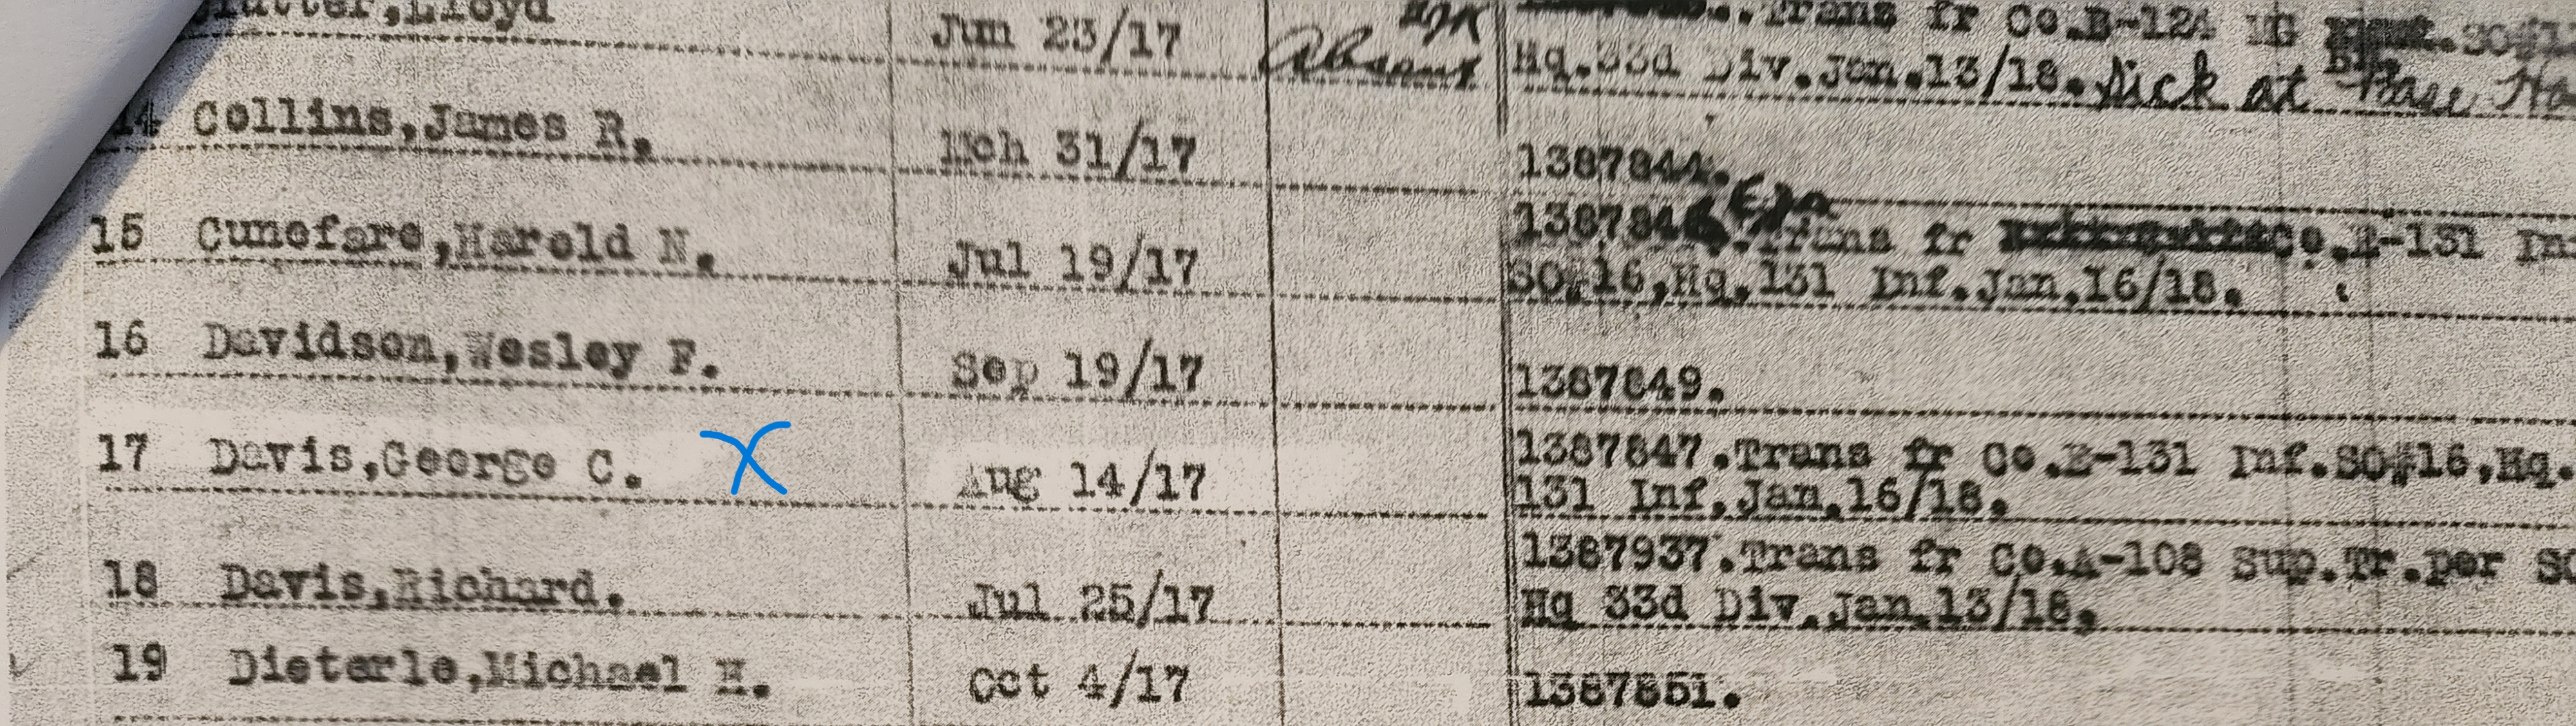 Lloyd Jun 23/17 Absent Trans fr Co.B-124
Hq.33d Div.Jan.13/18. Sick at Base
14 Collins,James R. Mch 31/17 1387844.
15 Cunefare,Harold N. Jul 19/17 Trans fr Co.E-131
SO#16,Hq.131 Inf.Jan.16/18.
16 Davidson,Wesley F. Sep 19/17 1387849.
17 Davis,George C. X Aug 14/17 1387847.Trans fr Co.E-131 Inf.SO#16,Hq.
131 Inf.Jan.16/18.
18 Davis,Richard. Jul 25/17 1387937.Trans fr Co.A-108 Sup.Tr.per
Hq 33d Div.Jan.13/18.
19 Dieterle,Michael H. Oct 4/17 1387851.